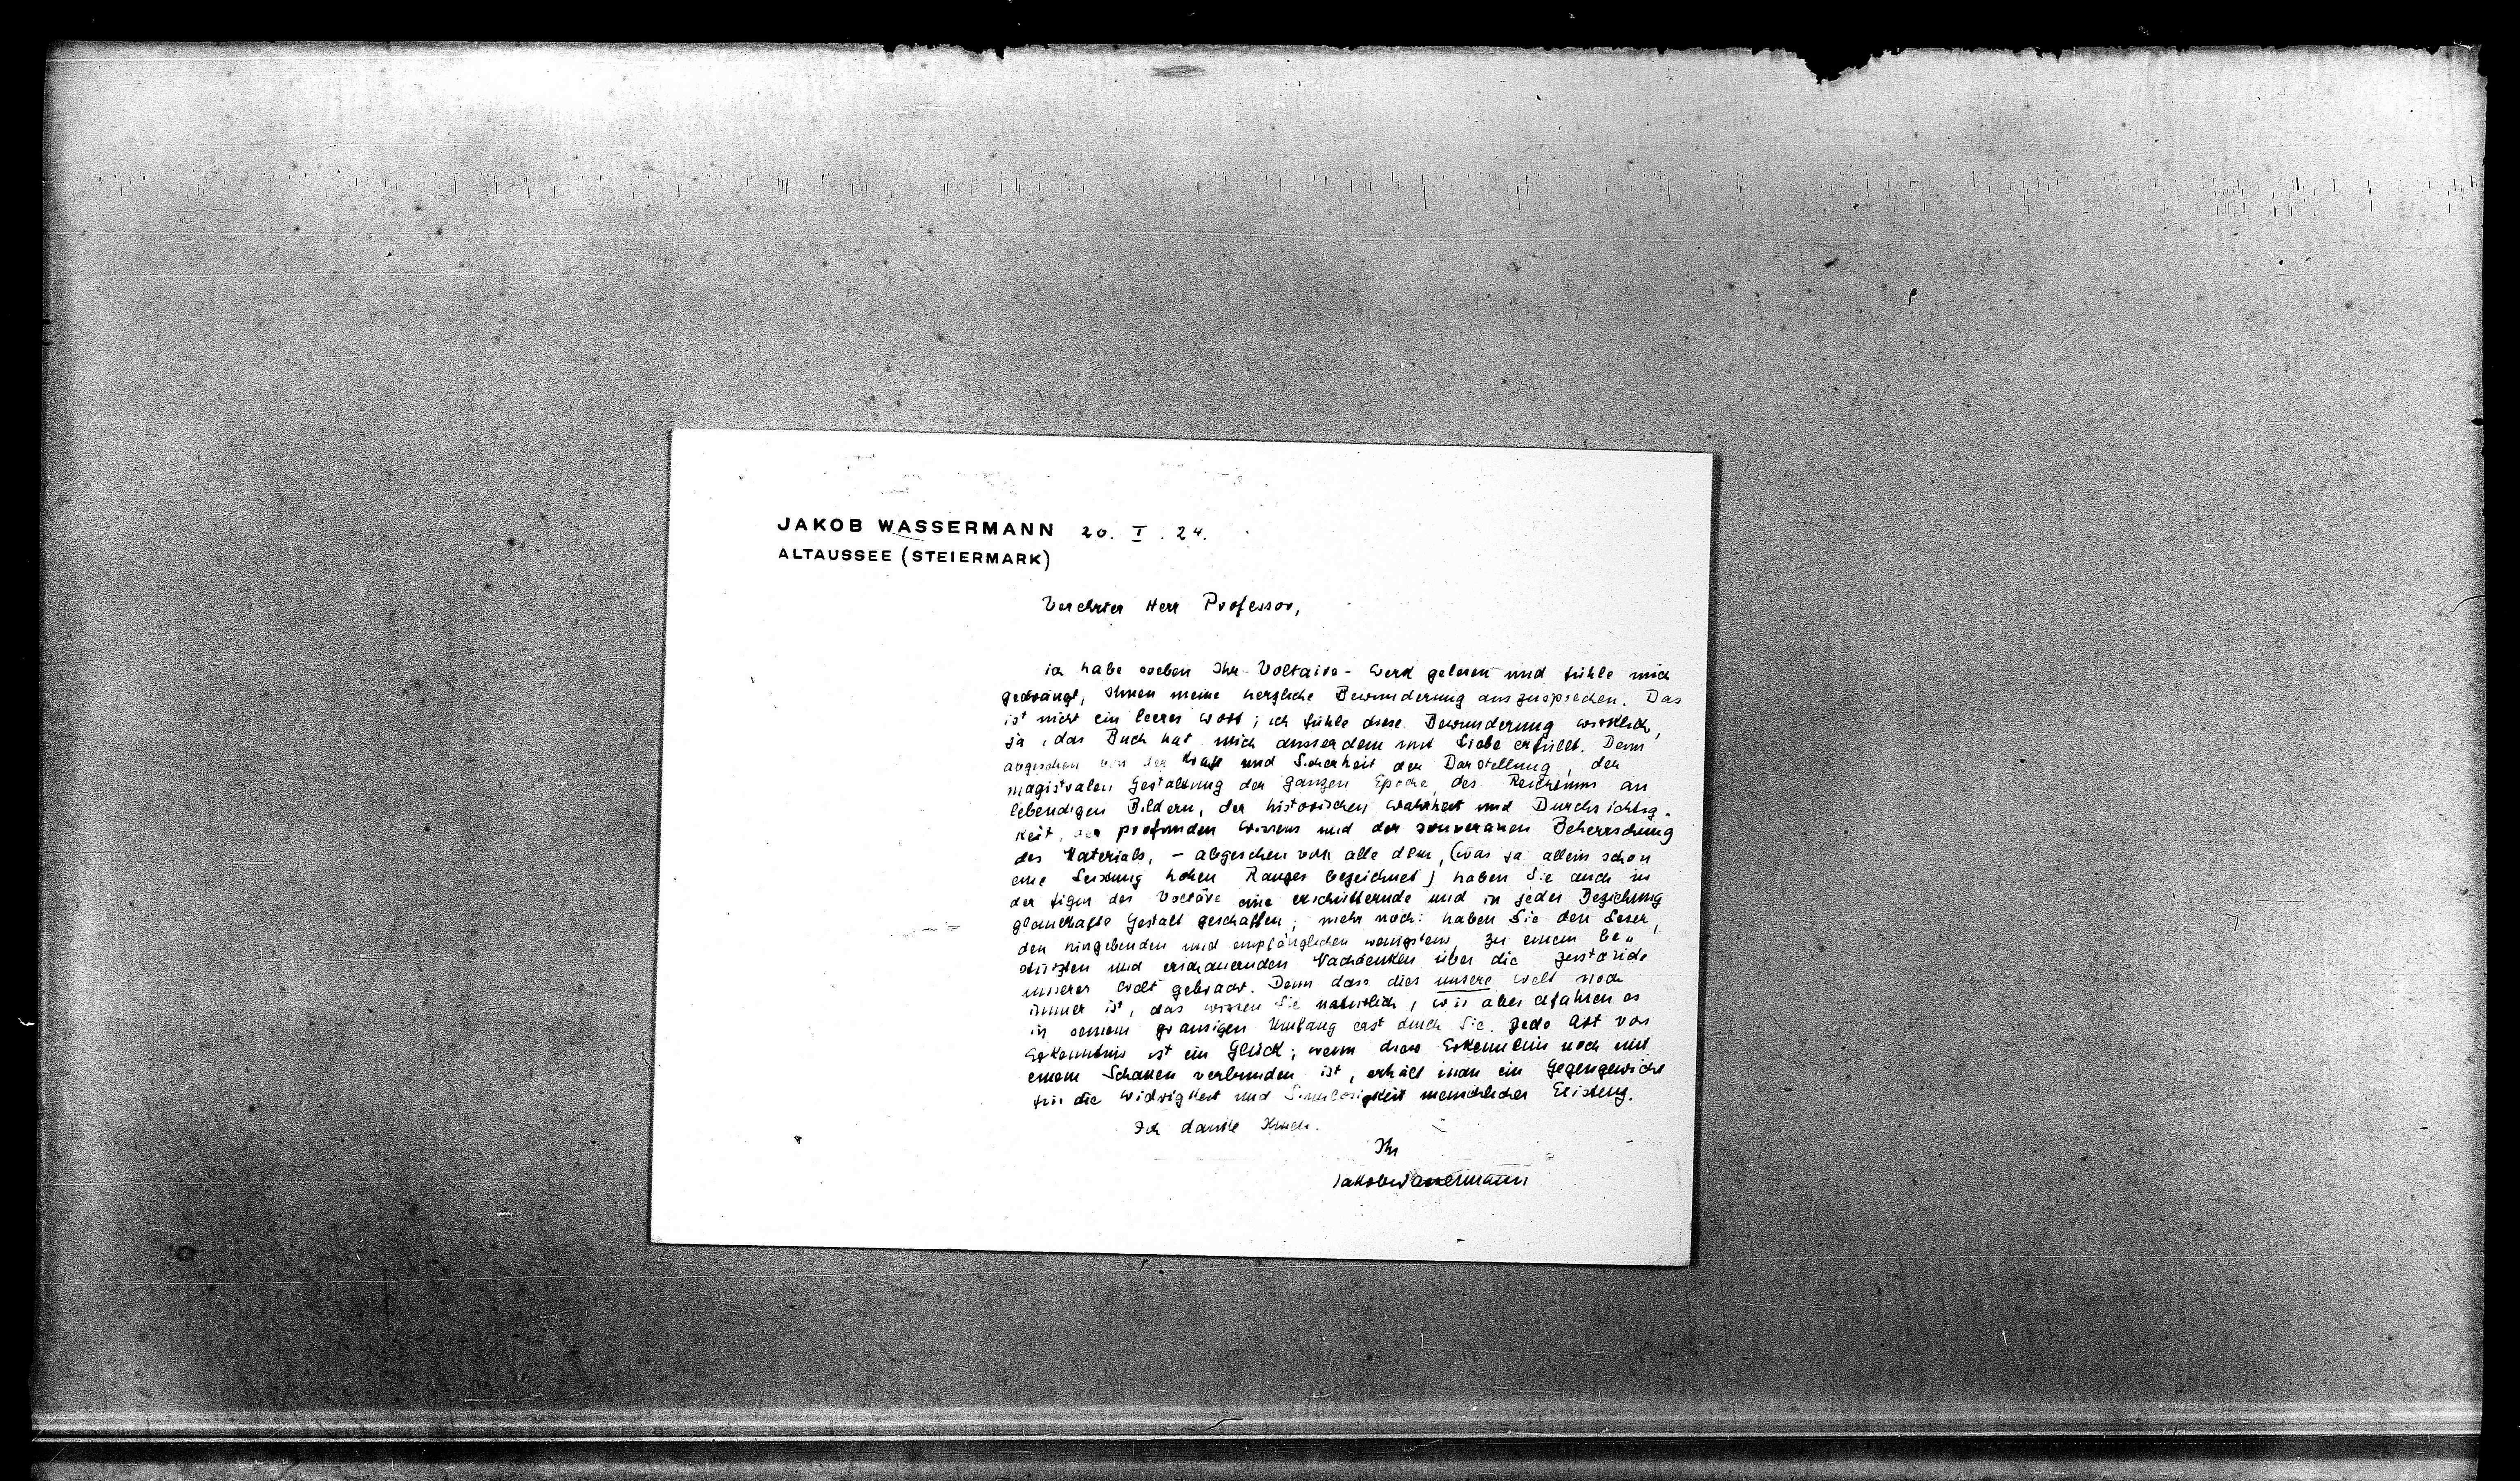 JAKOB WASSERMANN 20. I. 24.
ALTAUSSEE (STEIERMARK)
Verehrter Herr Professor,
ich habe soeben Ihr Voltaire-Werk gelesen und fühle mich
gedrängt, Ihnen meine herzliche Bewunderung auszusprechen. Das
ist nicht ein leeres Wort; ich fühle diese Bewunderung wirklich,
ja, das Buch hat mich ausserdem mit Liebe erfüllt. Denn
abgesehen von der Kraft und Sicherheit der Darstellung, der
magistralen Gestaltung der ganzen Epoche, des Reichtums an
lebendigen Bildern, der historischen Wahrheit und Durchsichtig-
keit, des profunden Wissens und der souveranen Beherrschung
des Materials, – abgesehen von alle dem, (was ja allein schon
eine Leistung hohen Ranges bezeichnet) haben Sie auch in
der Figur des Voltäre eine erschütternde und in jeder Beziehung
glaubhafte Gestalt geschaffen; mehr noch: haben Sie den Leser,
den hingebenden und empfänglichen wenigstens, zu einem be-
stürzten und erschauernden Nachdenken über die Zustände
unserer Welt gebracht. Denn dass dies unsere Welt noch
immer ist, das wissen Sie natürlich, wir aber erfahren es
in seinem grausigen Umfang erst durch Sie. Jede Art von
Erkenntnis ist ein Glück; wenn diese Erkenntnis noch mit
einem Schauen verbunden ist, erhält man ein Gegengewicht
für die Widrigkeit und Sinnlosigkeit menschlicher Existenz.
Ich danke Ihnen.
Ihr
Jakob Wassermann